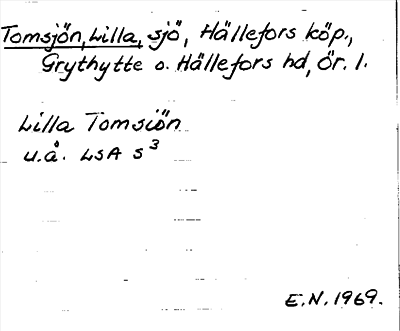 Tomsjön, Lilla, sjö, Hällefors köp.,
Grythytte o. Hällefors hd, Ör. l.
Lilla Tomsiön
u.å. LSA S³
E.N. 1969.